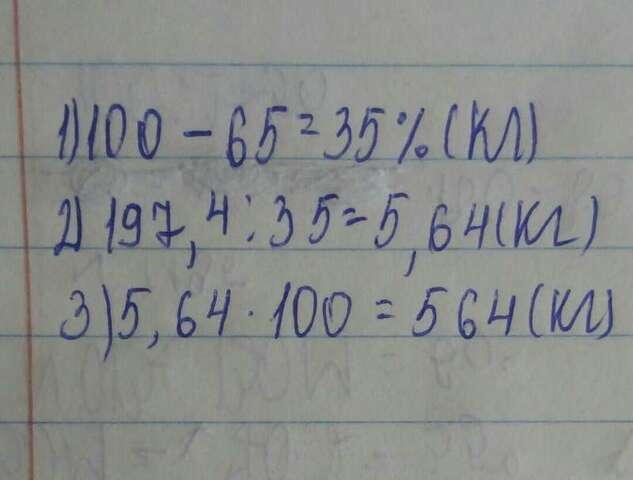 1) 100 - 65 = 35% (кг)
2) 197,4 : 35 = 5,64 (кг)
3) 5,64 · 100 = 564 (кг)